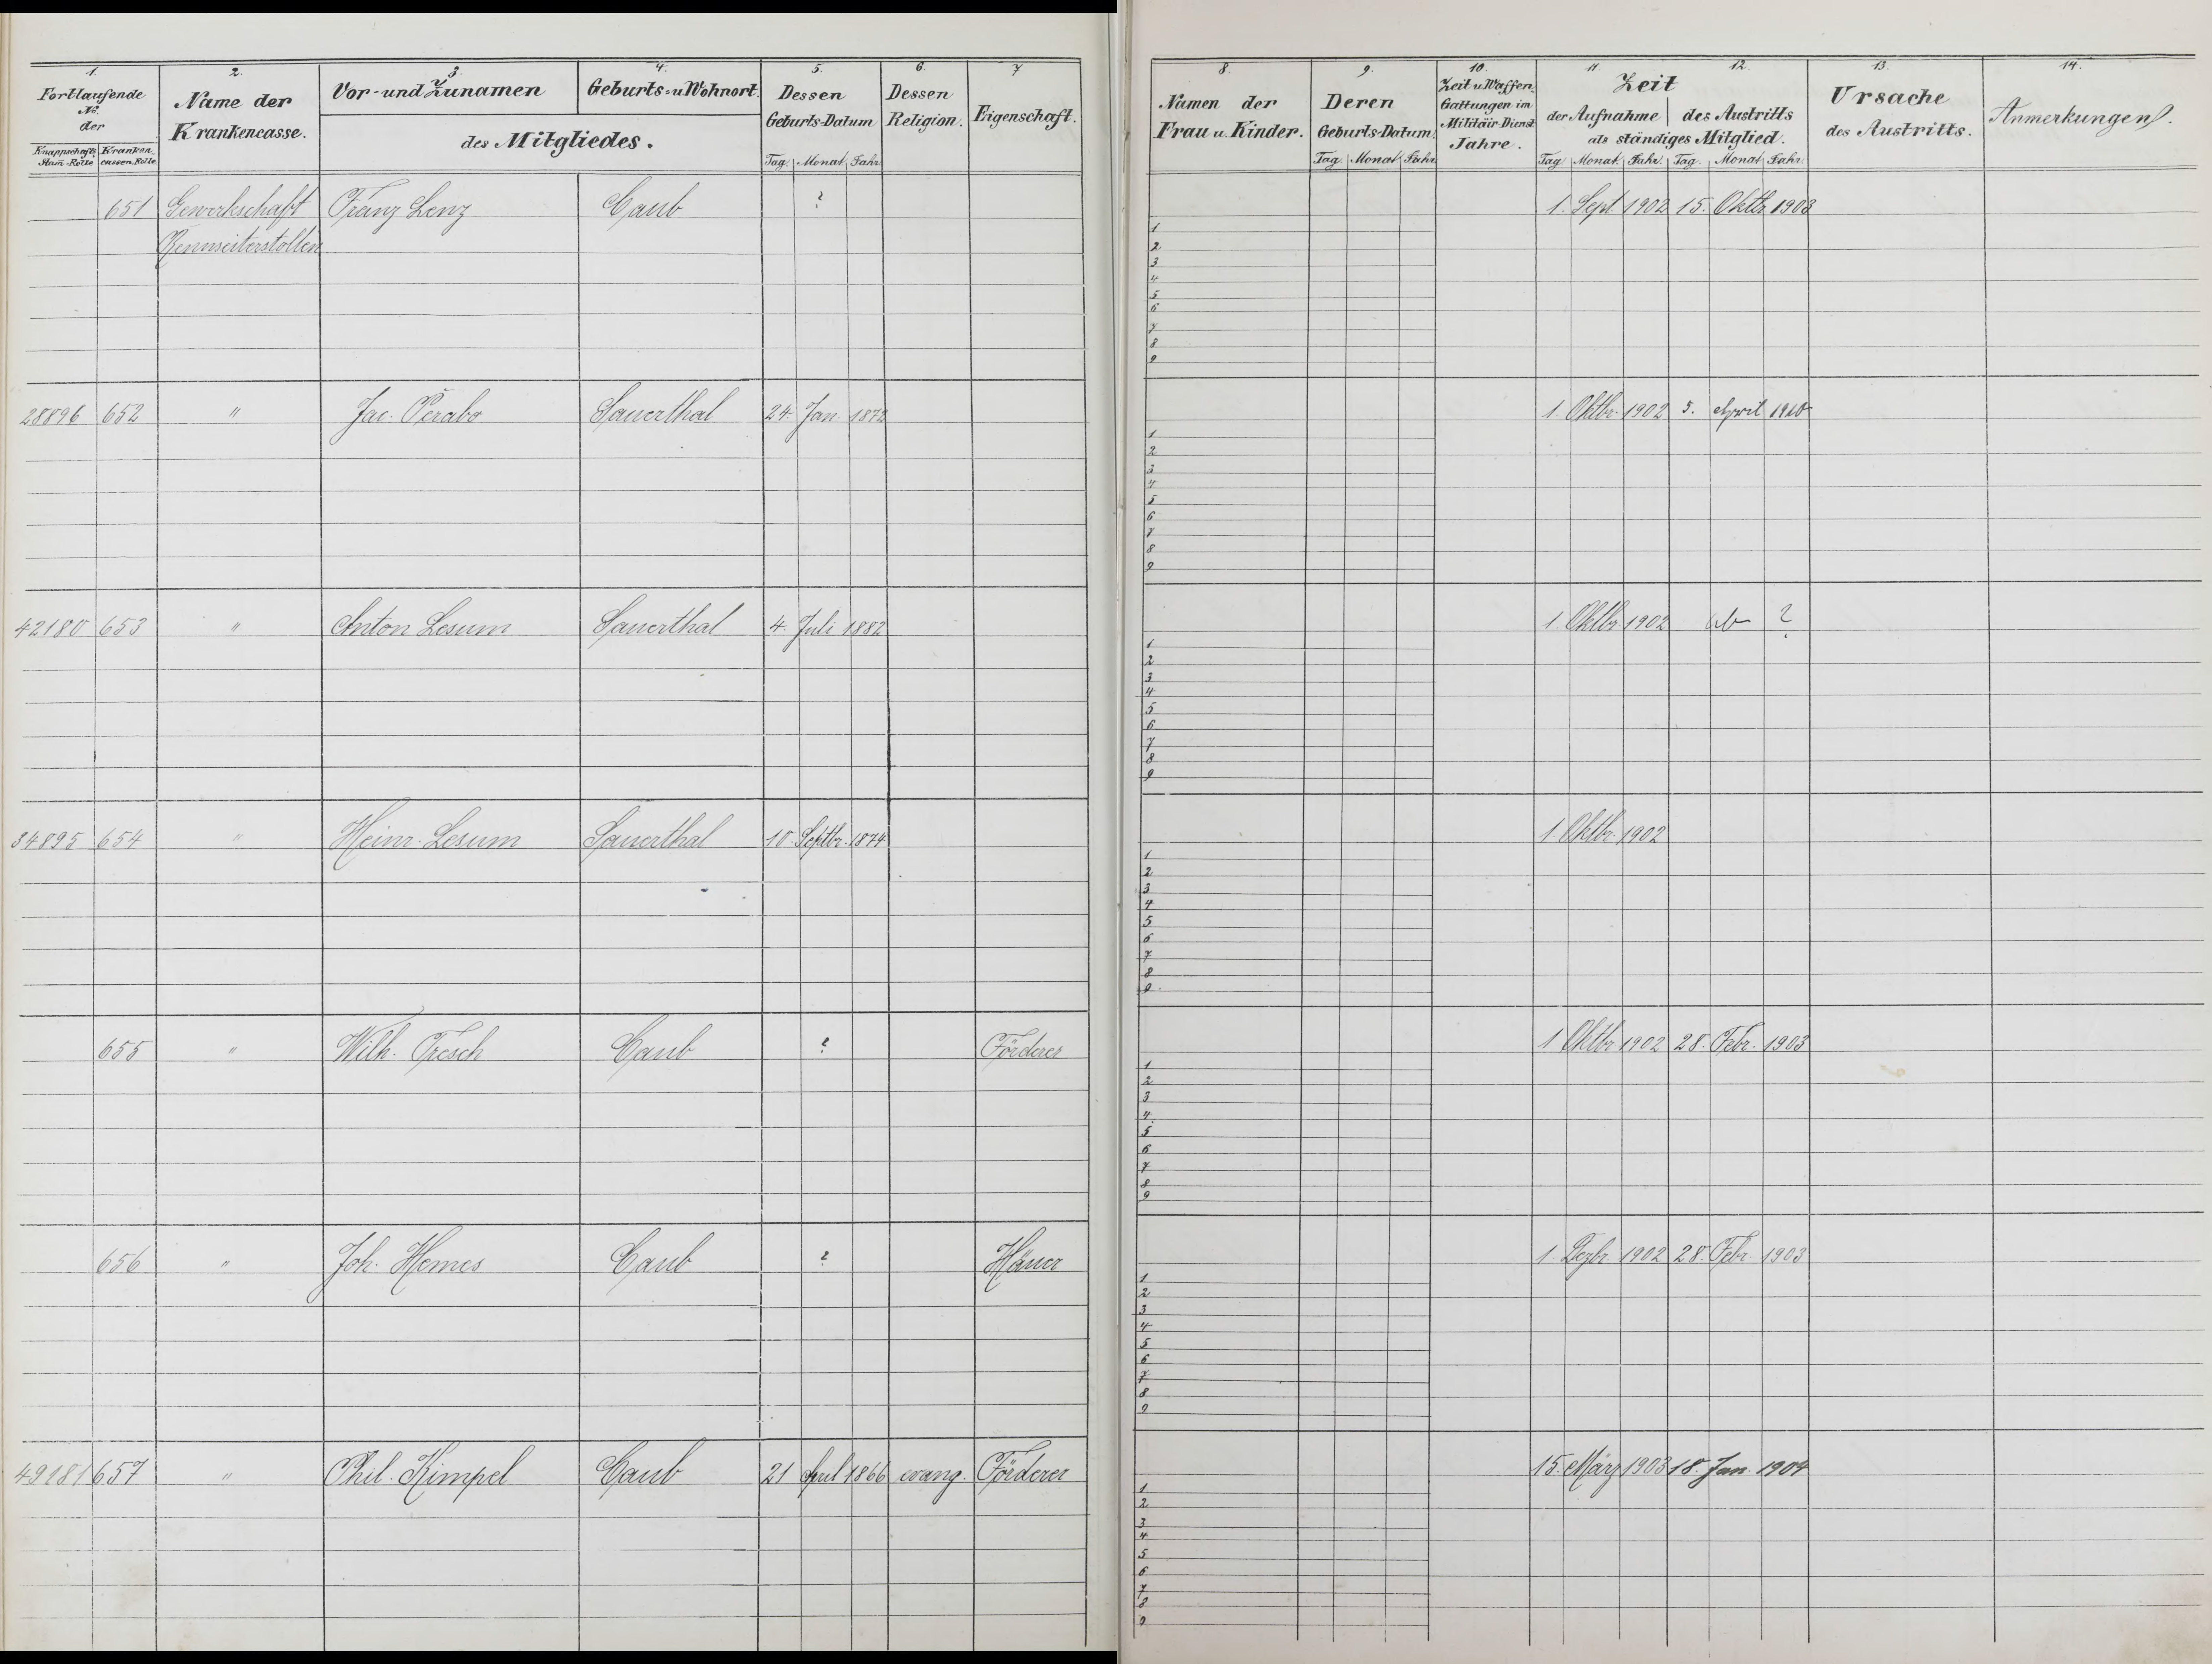 1. 2. 3. 4. 5. 6. 7
Fortlaufende No. der
Knappschafts Stam-Rolle
Kranken cassen Rolle
Name der Krankencasse.
Vor- und Zunamen
Geburts- u Wohnort.
des Mitgliedes.
Dessen Geburts-Datum
Tag. Monat. Jahr.
Dessen Religion.
Eigenschaft.
8. 9. 10. 11 12. 13. 14.
Namen der Frau u. Kinder.
Deren Geburts-Datum.
Tag Monat Jahr.
Zeit u Waffen Gattungen im Militäir-Dienst Jahre.
Zeit
der Aufnahme des Austritts
als ständiges Mitglied.
Tag Monat. Jahr. Tag. Monat Jahr.
Ursache des Austritts.
Anmerkungen.
651 Gewerkschaft Franz Lenz Caub ? 1. Sept. 1902 15. Oktbr 1903
Rennseiterstollen
1
2
3
4
5
6
7
8
9
28896 652 " Jac. Perabo Sauerthal 24. Jan. 1872 1. Oktbr. 1902 5. April 1910
1
2
3
4
5
6
7
8
9
42180 653 " Anton Lesum Sauerthal 4. Juli 1882 1. Oktbr 1902 ab ?
1
2
3
4
5
6
7
8
9
34895 654 " Heinr. Lesum Sauerthal 10. Septbr. 1874 1. Oktbr. 1902
1
2
3
4
5
6
7
8
9
655 " Wilh. Fresch Caub ? Förderer 1 Oktbr 1902 28. Febr. 1903
1
2
3
4
5
6
7
8
9
656 " Joh. Hemes Caub ? Häuer 1. Dezbr. 1902 28. Febr. 1903
1
2
3
4
5
6
7
8
9
49181 657 " Phil. Kimpel Caub 21 April 1866 evang. Förderer 15. März 1903 18. Jan. 1904
1
2
3
4
5
6
7
8
9